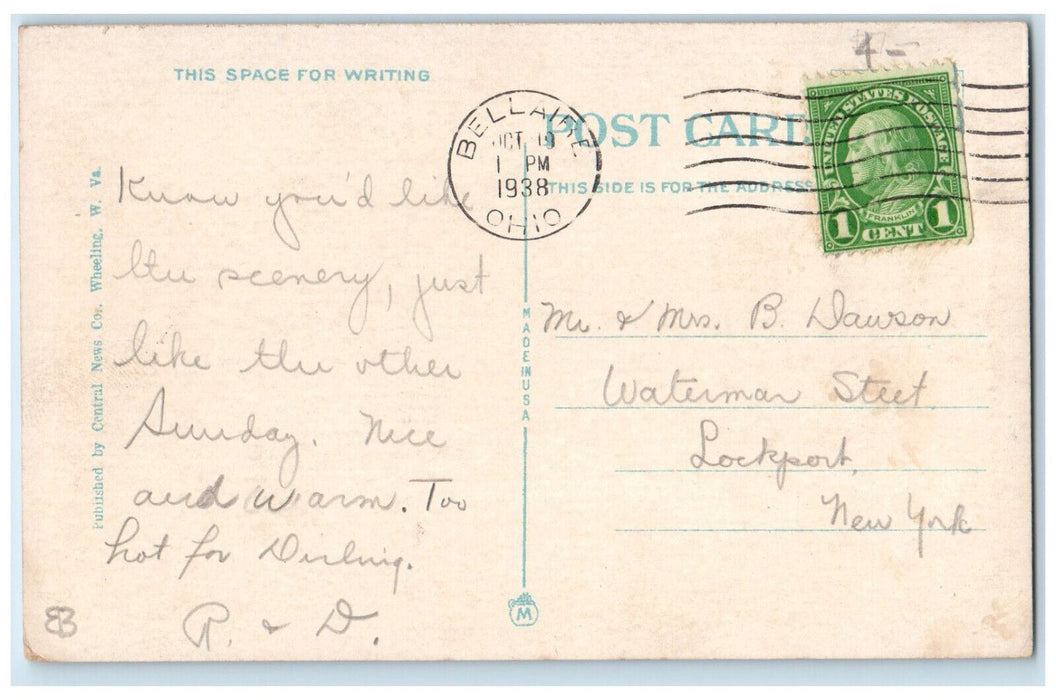 4-
THIS SPACE FOR WRITING
POST CARD
THIS SIDE IS FOR THE ADDRESS
BELLAIRE
OCT 19
1 PM
1938
OHIO
UNITED STATES POSTAGE
FRANKLIN
1 CENT 1
Know you'd like
the scenery, just
like the other
Sunday. Nice
and warm. Too
hot for
R. & D.
Mr. & Mrs. B. Dawson
Waterman Street
Lockport,
New York
Published by Central News Co., Wheeling, W. Va.
MADE IN USA
M